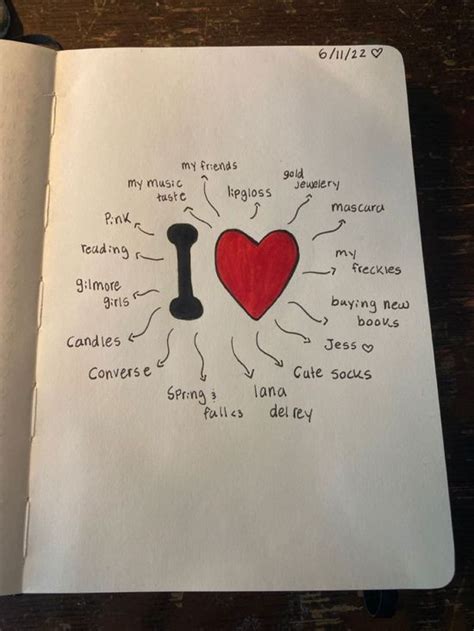 6/11/22 ♡
my friends
my music
taste
lipgloss
gold
jewelery
mascara
my
freckles
buying new
books
Jess ♡
Cute socks
lana
del rey
Spring &
fall <3
Converse
Candles
gilmore
girls
reading
Pink
I ♥